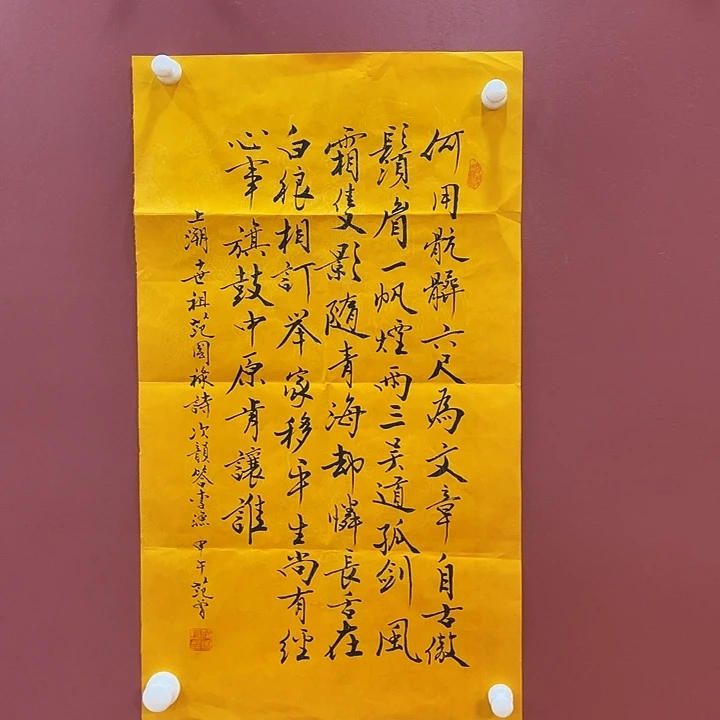 何用骯髒六尺為文章自古傲
鬚眉一帆煙雨三吴道孤劍風
霜隻影隨青海却憐長舌在
白狼相訂举家移平生尚有經
心事旗鼓中原肯讓誰
上溯十世祖范國祿詩次韻答李漁 甲午范曾